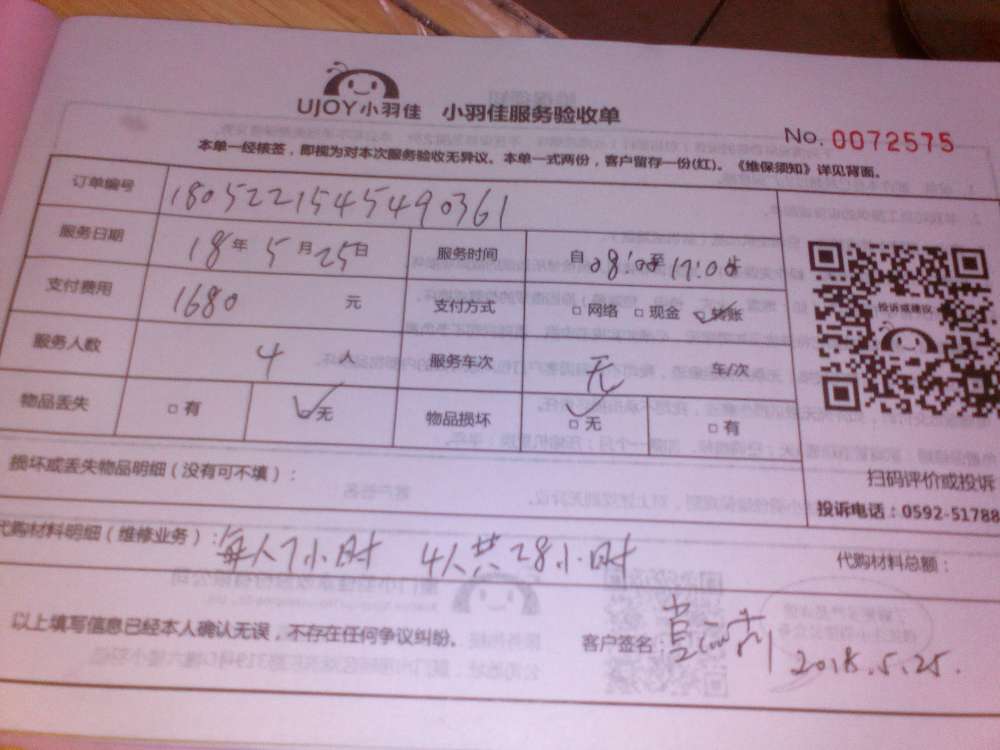 UJOY小羽佳 小羽佳服务验收单
No. 0072575
本单一经核签，即视为对本次服务验收无异议。本单一式两份，客户留存一份(红)。《维保须知》详见背面。
订单编号 1805221545490361
服务日期 18年5月25日 服务时间 自08:00至17:00
支付费用 1680 元 支付方式 □网络 □现金 ☑转账
服务人数 4 人 服务车次 无 车/次
物品丢失 □有 ☑无 物品损坏 ☑无 □有
投诉或建议
扫码评价或投诉
投诉电话：0592-51788
损坏或丢失物品明细（没有可不填）：
代购材料明细（维修业务）：每人7小时 4人共28小时 代购材料总额：
以上填写信息已经本人确认无误，不存在任何争议纠纷。 客户签名：
2018.5.25.